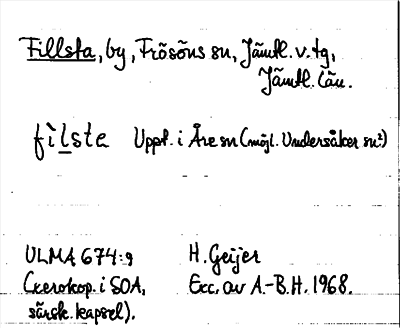 Fillsta, by, Frösöns sn, Jämtl. v. tg,
Jämtl. län.
fìlste Uppt. i Åre sn (möjl. Undersåker sn?)
ULMA 674:9 H. Geijer
(Xerokop. i SOA, Exc. av A.-B.H. 1968.
särsk. kapsel).